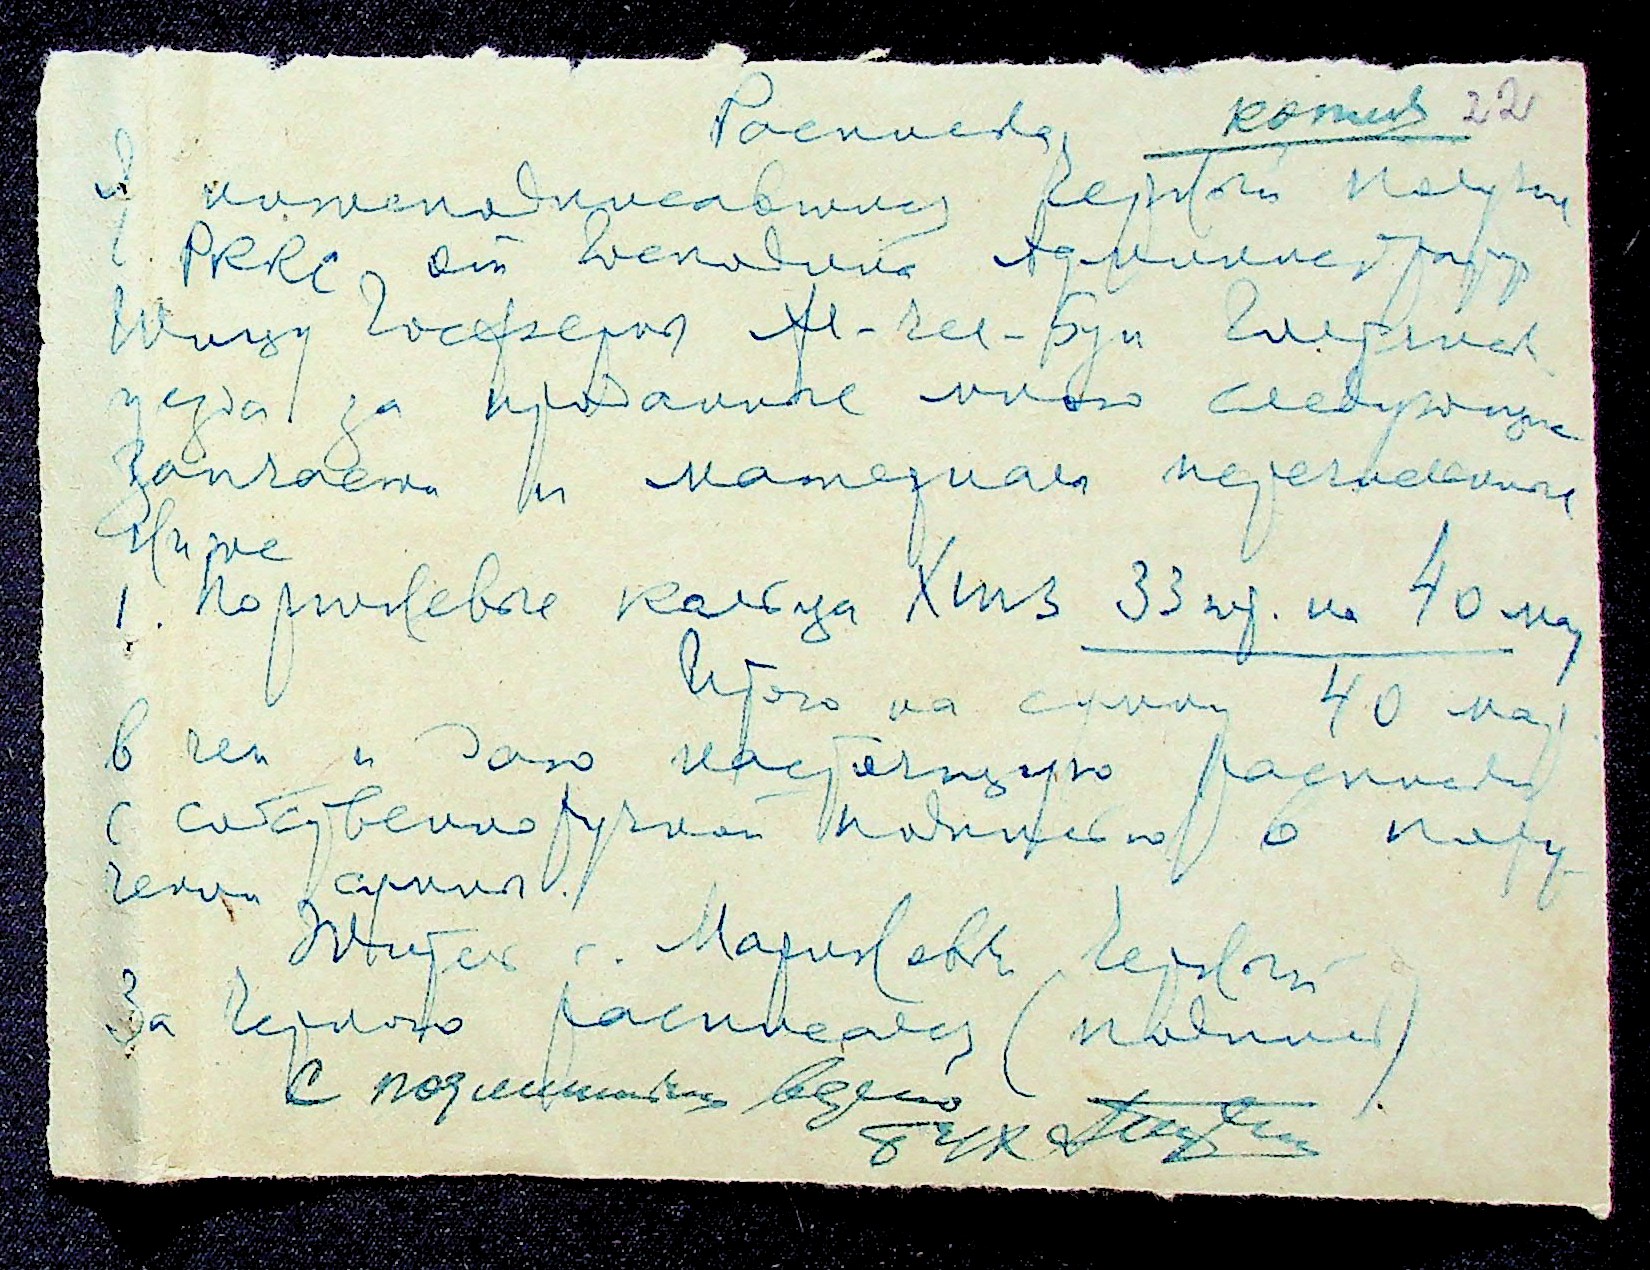 Расписка копия 22
Я нижеподписавшийся Черный получил
РККС от Господина Администратора
за проданные мною следующие
Запчасти и материалы перечисленные
Ниже
1. Поршневые кольца ХТЗ 33 шт. на 40 мар
Итого на сумму 40 мар
В чем и даю настоящую расписку
с собственноручной подписью о полу-
чении суммы.
Житель с. Черный
За Черного расписался (подпись)
С подлинным верно
бух